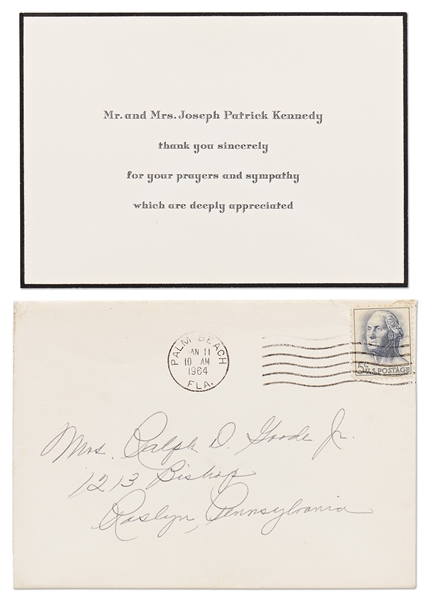 Mr. and Mrs. Joseph Patrick Kennedy
thank you sincerely
for your prayers and sympathy
which are deeply appreciated
PALM BEACH
JAN 11
10 AM
1964
FLA.
5¢ U.S. POSTAGE
Mrs. Ralph D. Goode Jr.
1213 Bishop
Roslyn, Pennsylvania